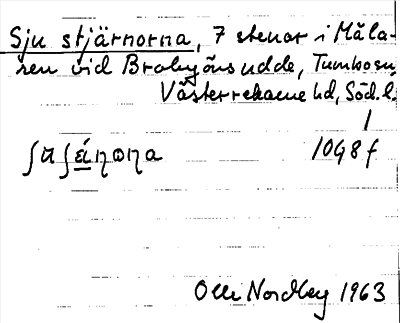 Sju stjärnorna, 7 stenar i Mäla-
ren vid Brobyåns udde, Tumbo sn,
Västerrekarne hd, Söd. l.
1
1048 f
Olle Nordberg 1963